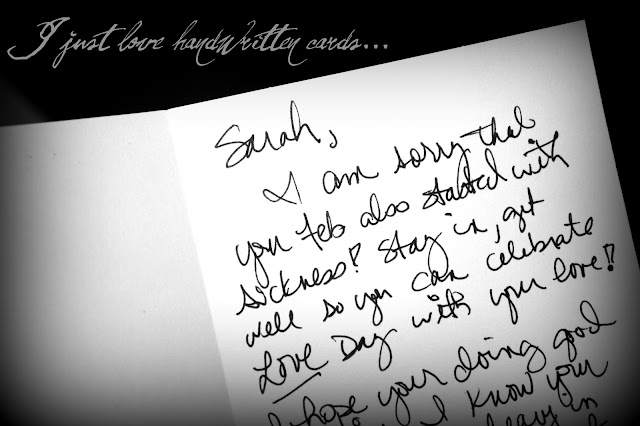 I just love handwritten cards...
Sarah,
I am sorry that
you Feb also started with
sickness! Stay in, get
well so you can celebrate
Love Day with your love!
I hope your doing good
I know your
heavy in